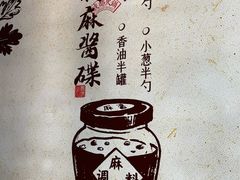 麻酱碟
小葱半勺
香油半罐
麻
调料